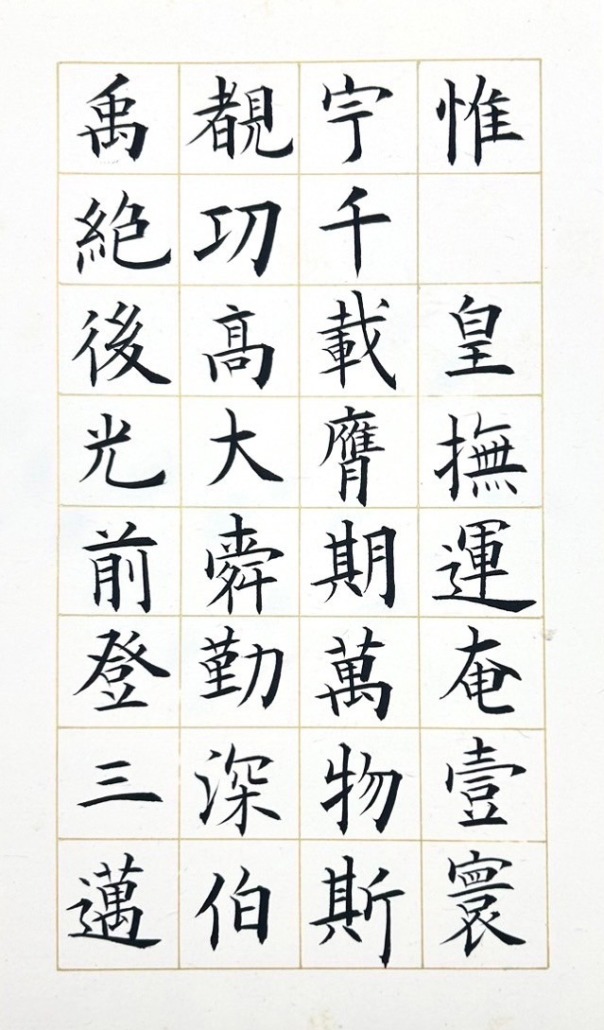 惟 皇撫運奄壹寰
宇千載膺期萬物斯
覩功高大舜勤深伯
禹絶後光前登三邁